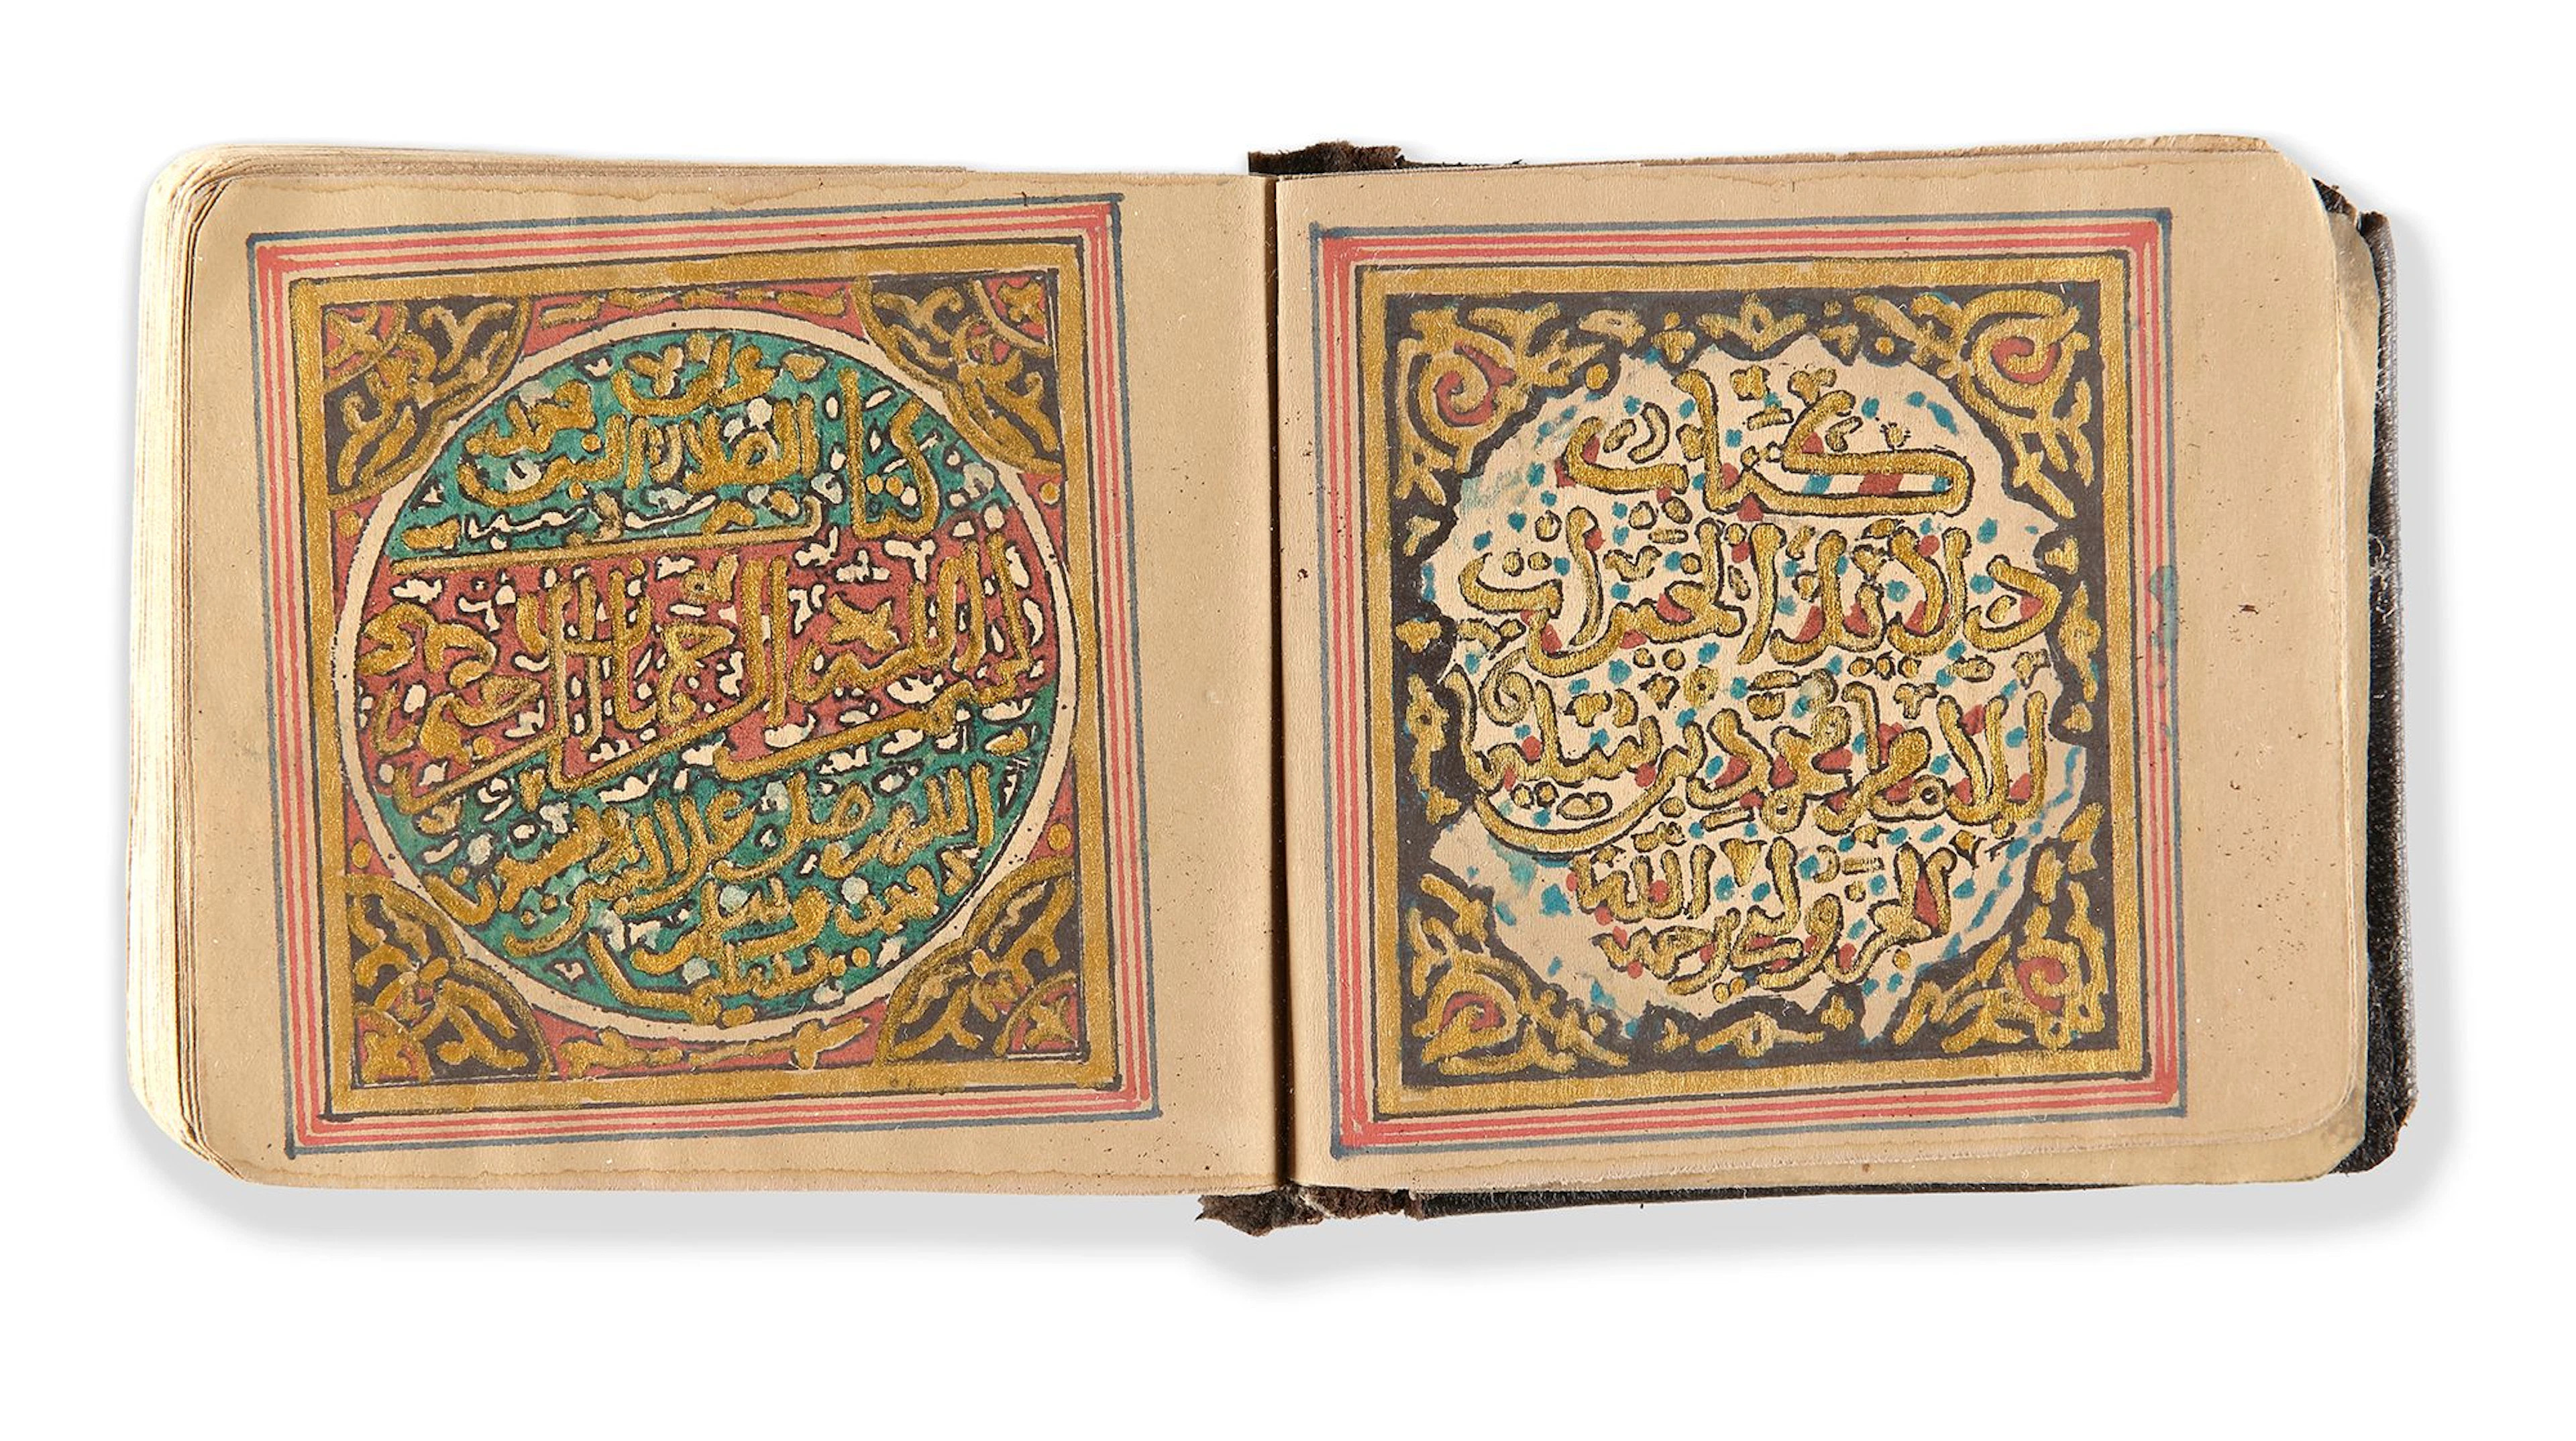 كتاب
دلائل الخيرات
للإمام محمد بن سليمان
الجزولي رحمه الله
كتاب
الصلاة على النبي محمد
بسم الله الرحمن الرحيم
اللهم صل على النبي
وسلم